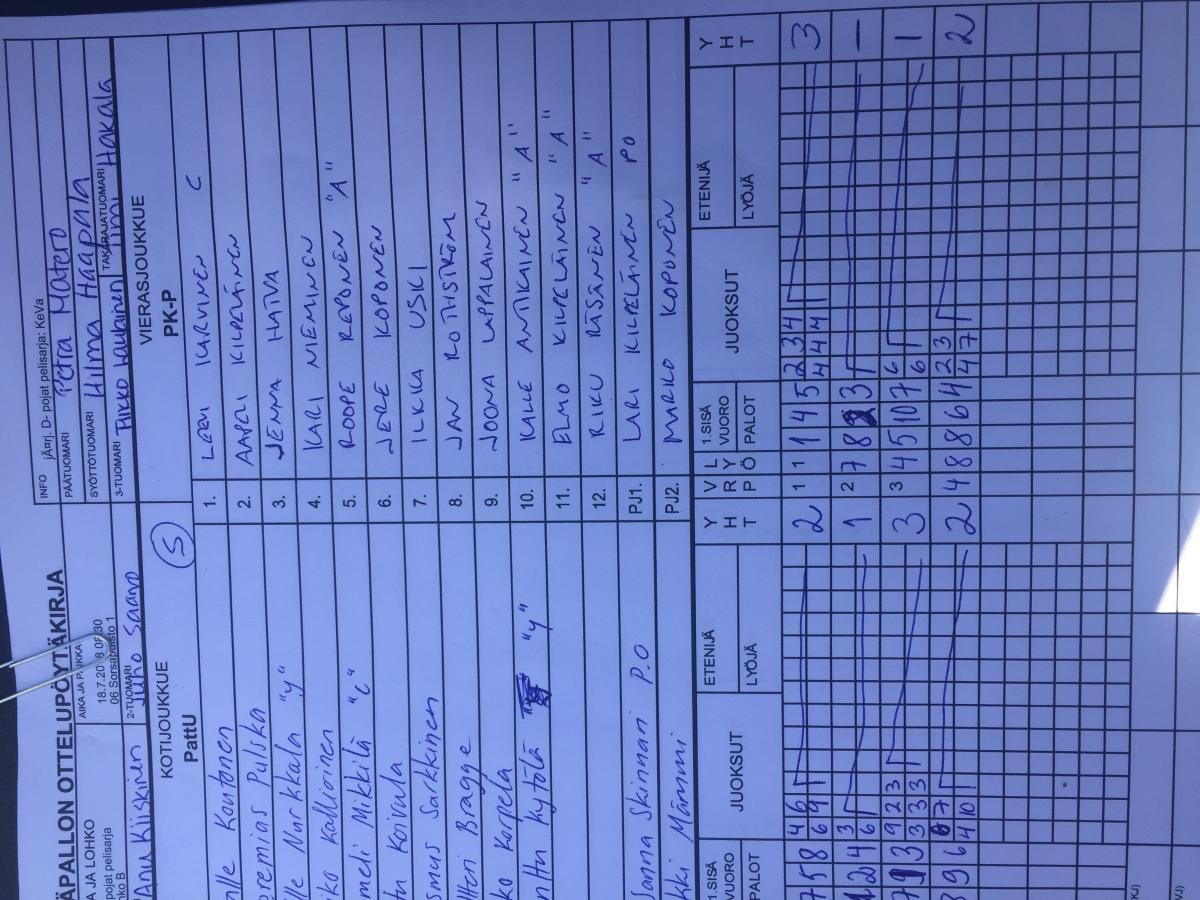 ÄPALLON OTTELUPÖYTÄKIRJA
INFO jÄ¤rj. D- pojat pelisarja: KeVa
A JA LOHKO
pojat pelisarja
AIKA JA PAIKKA
18.7.20
06 Sorsapuisto 1
PÄÄTUOMARI Petra Matero
SYÖTTÖTUOMARI Hilma Haapala
Anu Kiiskinen
2-TUOMARI Juho Saano
3-TUOMARI
TAKARAJATUOMARI Timi Hakala
KOTIJOUKKUE
PattU
S
VIERASJOUKKUE
PK-P
lle Kontonen
1. LEEVI KARVINEN C
remias Pulska
2. AAPELI KILPELÄINEN
lle Nurkkala "y"
3. JENNA
iko Kallioinen
4. KARI NIEMINEN
medi Mikkilä "c"
5. ROOPE REPONEN "A"
tu Koivula
6. JERE KOPONEN
smus Sarkkinen
7. ILKKA USKI
ltteri Bragge
8. JAN ROTHSTRÖM
ko Korpela
9. JOONA LAPPALAINEN
nttu Kytölä "y"
10. KALLE ANTIKAINEN "A"
11. ELMO KILPELÄINEN "A"
12. RIKU RÄSÄNEN "A"
Sanna Skinnari P.O
PJ1. LARI KILPELÄINEN PO
kki Mämmi
PJ2. MARKO KOPONEN
1.SISÄ VUORO PALOT JUOKSUT ETENIJÄ LYÖJÄ Y H T
V R P L Y Ö 1.SISÄ VUORO PALOT JUOKSUT ETENIJÄ LYÖJÄ Y H T
7 5 8 4 6 2 1 1 1 4 5 2 3 4 3
6 9 4 4 4
2 4 3 1 2 7 8 3 –
6
7 3 9 2 3 3 3 4 5 10 7 6 1
3 3 3 6
3 9 6 7 2 4 8 8 6 4 2 3 2
4 10 4 7